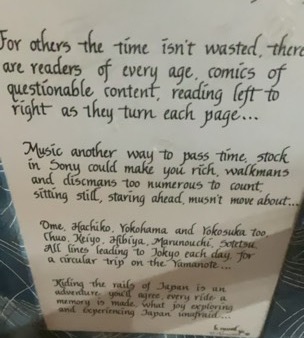 For others the time isn't wasted, there
are readers of every age, comics of
questionable content, reading left to
right as they turn each page...
Music another way to pass time, stock
in Sony could make you rich, walkmans
and discmans too numerous to count,
sitting still, staring ahead, musn't move about...
Ome, Hachiko, Yokohama and Yokosuka too,
Chuo, Keiyo, Hibiya, Marunouchi, Sotetsu.
All lines leading to Tokyo each day, for
a circular trip on the Yamanote...
Riding the rails of Japan is an
adventure you'll agree, every ride a
memory is made, what joy exploring
and experiencing Japan unafraid...